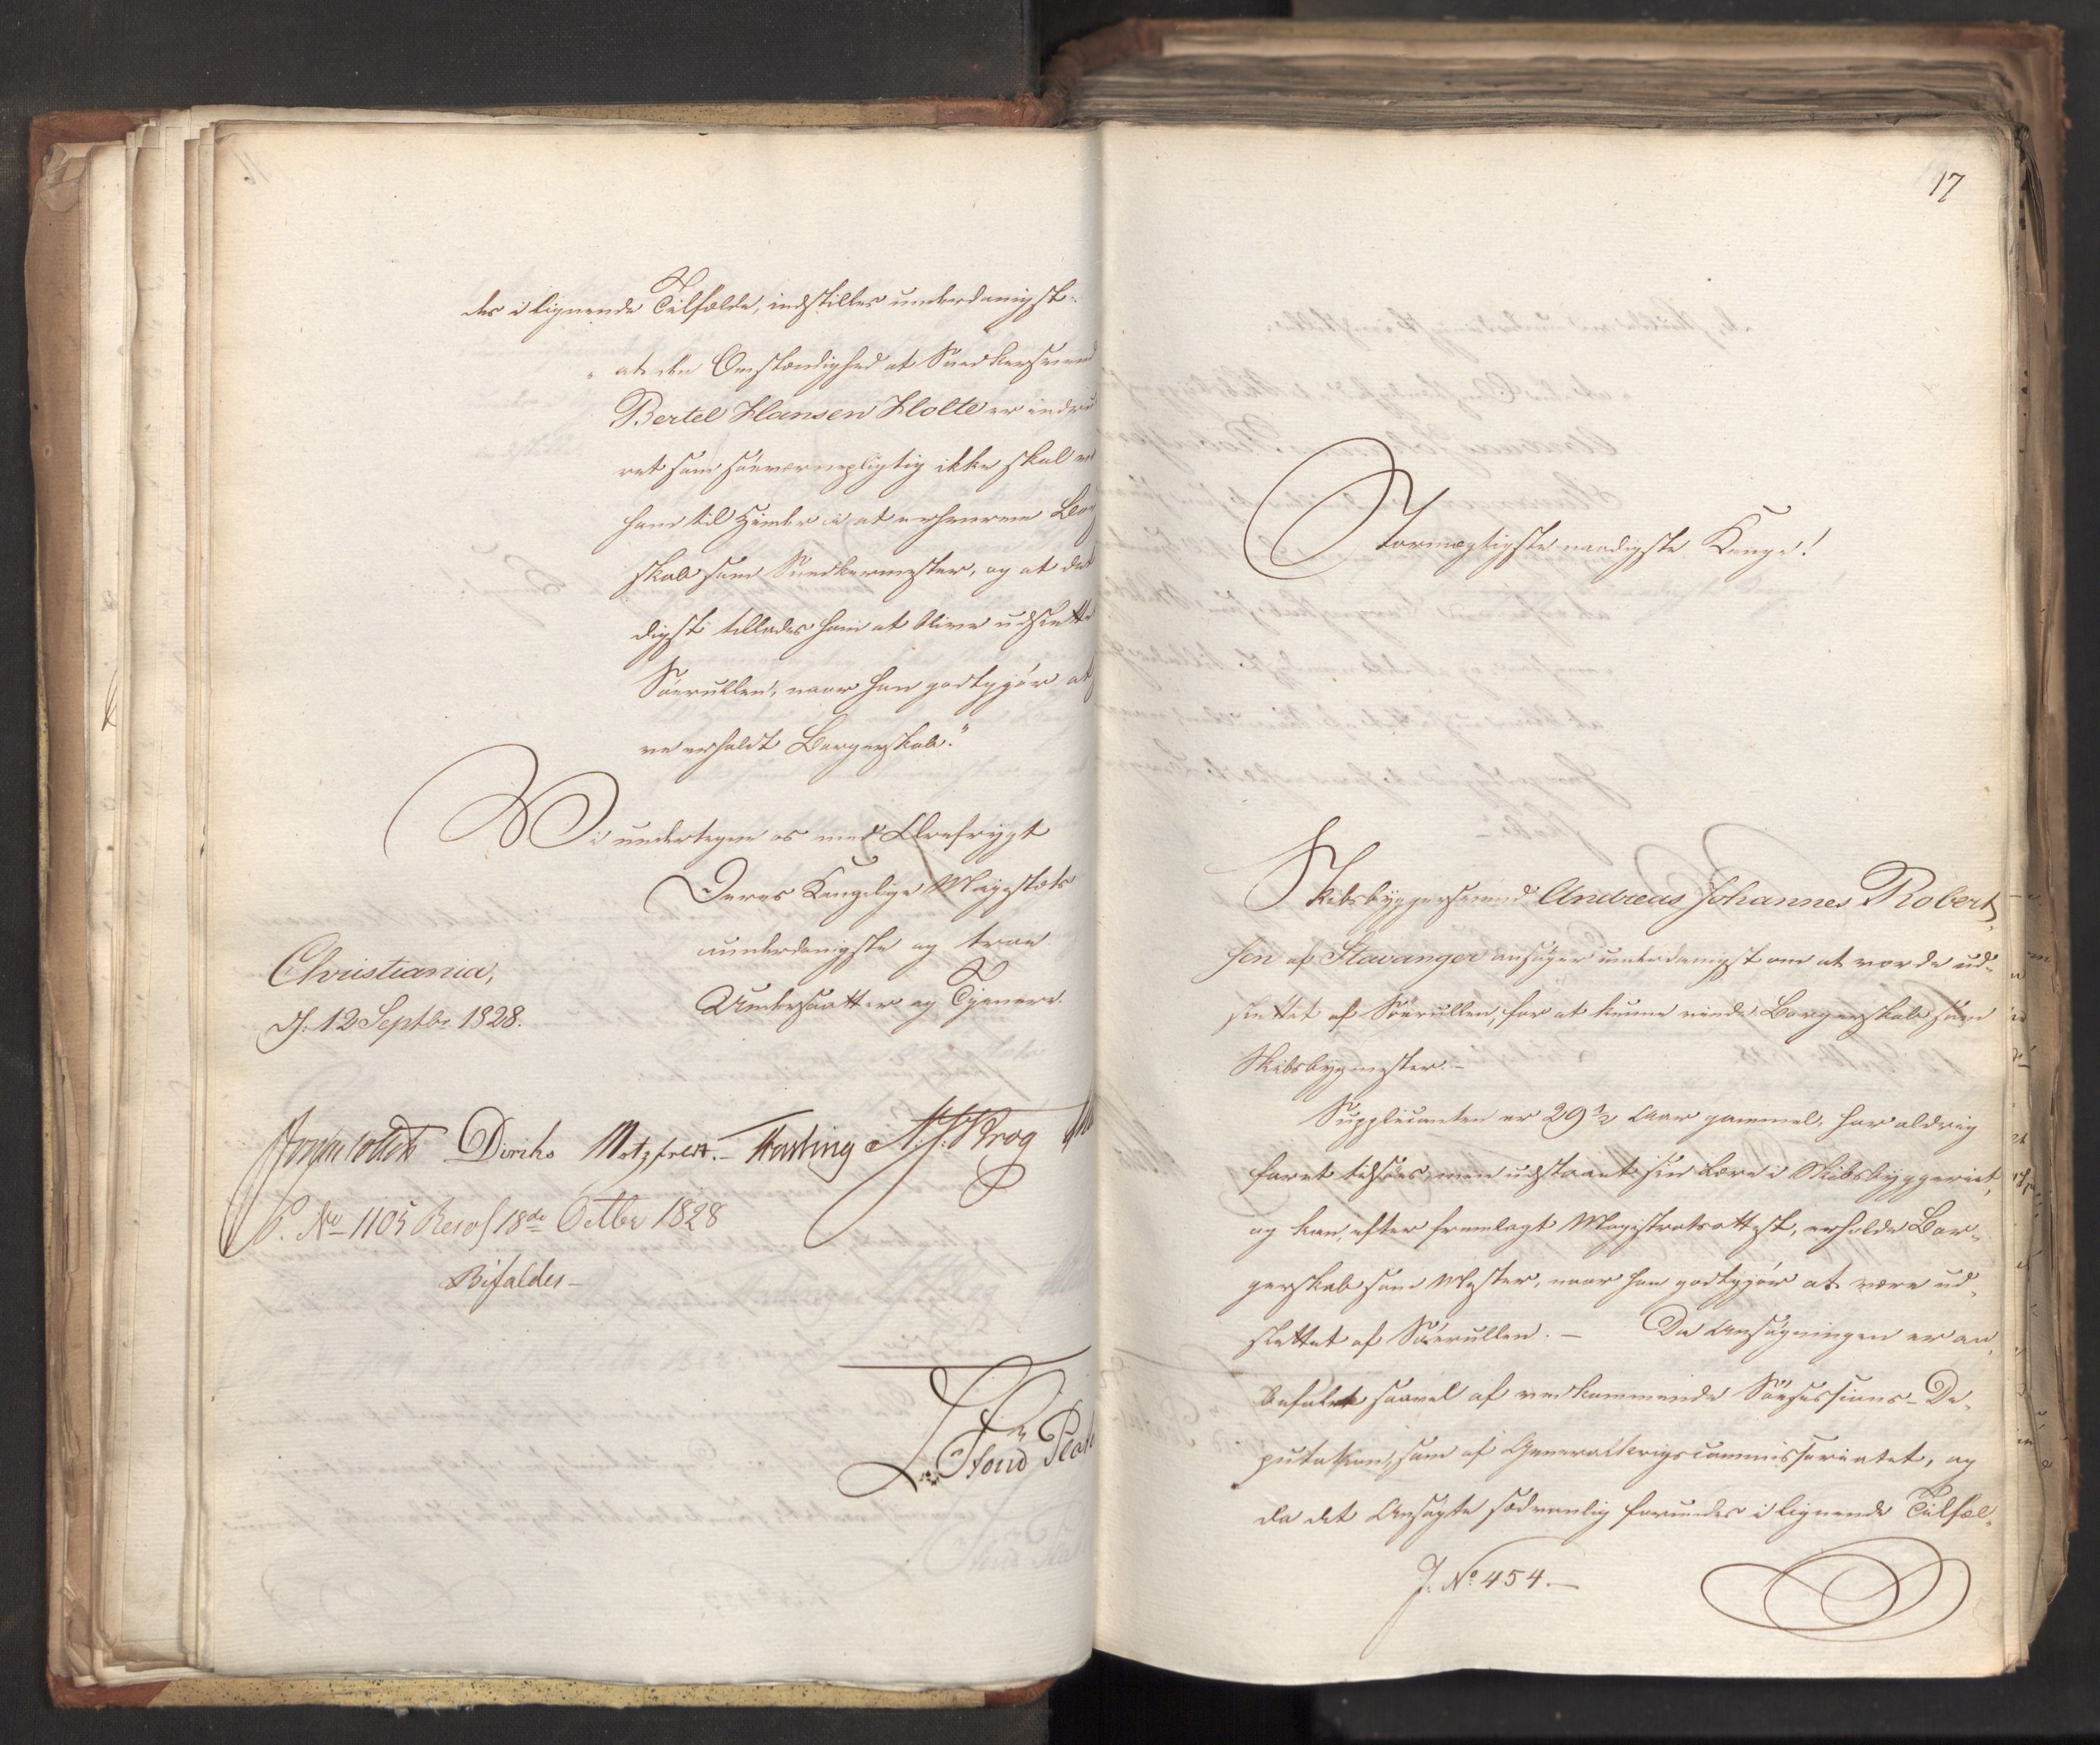 des i lignende Tilfælde, indstilles underdanigst:
"at den Omstændighed at Snedkersvend
Bertel Hansen Holte er indrul
ret som söeværnepligtig ikke skal væ
ham til Hinder i at erhverve Bor
skab som Snedkermester, og at det
digst tillades ham at blive udslettet
Söerullen, naar han godtgjör at
ve erholdt Borgerskab."
Vi undertegne os med Ærefrygt
Deres Kongelige Majestæts
underdanigste og troe
Undersaatter og Tjenere.
Christiania,
d. 12 Septbr 1828.
Diriks Motzfeldt. Fasting Krog
P. No 1105 Resol 18de Octbr 1828
Bifaldes-
17
Stormægtigste naadigste Konge!
Skibsbyggersvend Andreas Johannes Robert,
sen af Stavanger ansöger underdanigst om at vorde ud-
slettet af Söerullen, for at kunne vinde Borgerskab som
Skibsbygmester.-
Supplicanten er 29 ½ Aar gammel, har aldrig
faret tilsöes, men udstaaet sin Lære i Skibsbyggeriet,
og kan, efter fremlagt Magistratsattest, erholde Bor-
gerskab som Mester, naar han godtgjör at være ud-
slettet af Söerullen. - Da Ansögningen er an-
befalet saavel af vedkommende Söesessions-De-
putation, som af Generalkrigscommissariatet, og
da det Ansögte sædvanlig forundes i lignende Tilfæl-
J. No 454.-